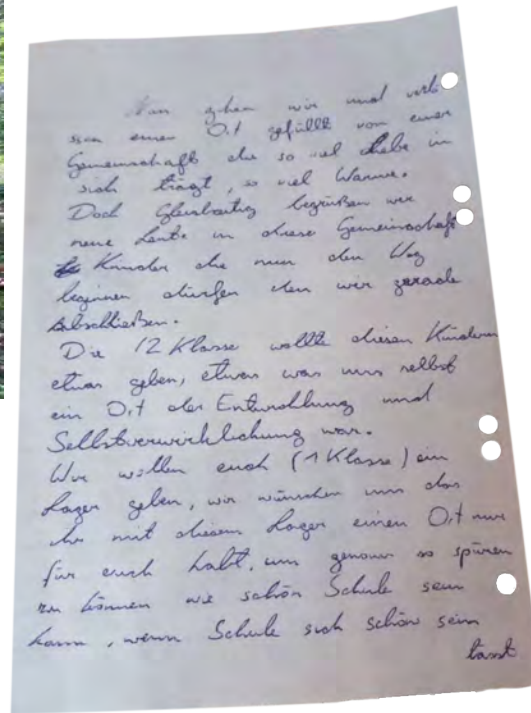 Nun gehen wir und verlas
sen einen Ort gefüllt von einer
Gemeinschaft die so viel Liebe in
sich trägt, so viel Wärme.
Doch Gleichzeitig begrüßen wir
neue Leute in dieser Gemeinschaft
Kinder die nun den Weg
beginnen dürfen den wir gerade
Abschließen.
Die 12 Klasse wollte diesen Kindern
etwas geben, etwas was uns selbst
ein Ort der Entwicklung und
Selbstverwirklichung war.
Wir wollen euch (1 Klasse) ein
Lager geben, wir wünschen uns das
ihr mit diesem Lager einen Ort nur
für euch habt, um genau so spüren
zu können wie schön Schule sein
kann, wenn Schule sich schön sein
lässt